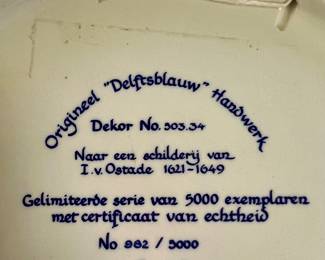 Origineel "Delftsblauw" Handwerk
Dekor No. 503.34
Naar een schilderij van
I.v. Ostade 1621-1649
Gelimiteerde serie van 5000 exemplaren
met certificaat van echtheid
No 982 / 5000